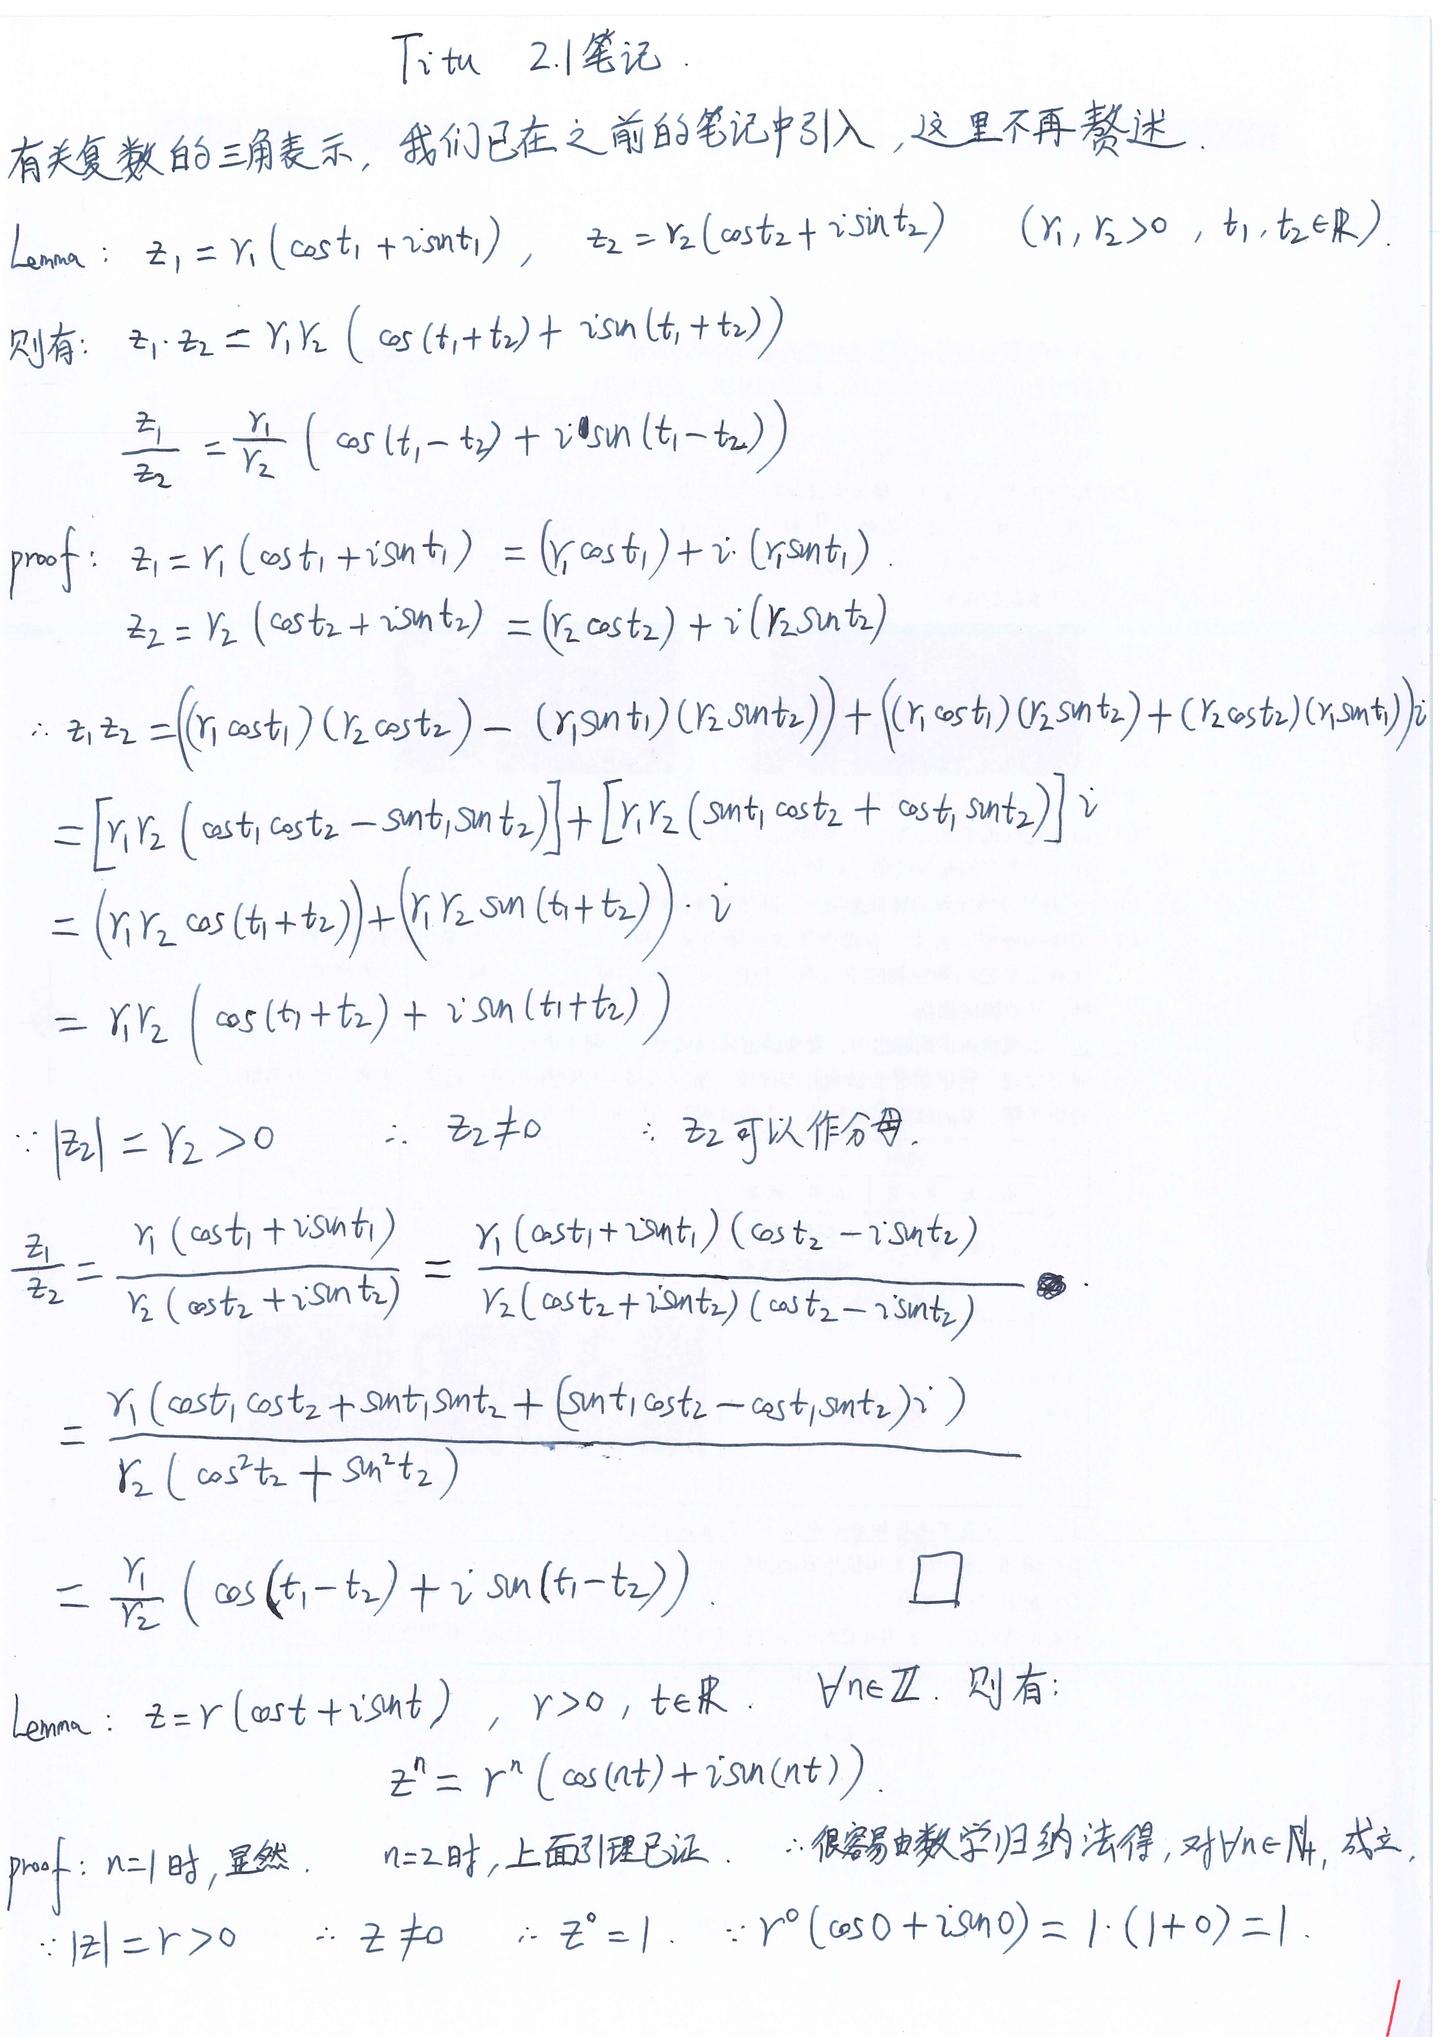 Titu 2.1笔记.
有关复数的三角表示, 我们已在之前的笔记中引入, 这里不再赘述.
Lemma: z₁ = r₁(cost₁ + isint₁), z₂ = r₂(cost₂ + isint₂) (r₁, r₂>0, t₁, t₂∈ℝ).
则有: z₁·z₂ = r₁r₂ (cos(t₁+t₂) + isin(t₁+t₂))
z₁/z₂ = r₁/r₂ (cos(t₁-t₂) + i sin(t₁-t₂))
proof: z₁ = r₁(cost₁ + isint₁) = (r₁cost₁) + i·(r₁sint₁).
z₂ = r₂(cost₂ + isint₂) = (r₂cost₂) + i(r₂sint₂)
∴ z₁z₂ = ((r₁cost₁)(r₂cost₂) - (r₁sint₁)(r₂sint₂)) + ((r₁cost₁)(r₂sint₂) + (r₂cost₂)(r₁sint₁))i
= [r₁r₂(cost₁cost₂ - sint₁sint₂)] + [r₁r₂(sint₁cost₂ + cost₁sint₂)] i
= (r₁r₂ cos(t₁+t₂)) + (r₁r₂ sin(t₁+t₂)) i
= r₁r₂ (cos(t₁+t₂) + i sin(t₁+t₂))
∵ |z₂| = r₂ > 0 ∴ z₂ ≠ 0 ∴ z₂可以作分母.
z₁/z₂ = r₁(cost₁ + isint₁)/r₂(cost₂ + isint₂) = r₁(cost₁ + isint₁)(cost₂ - isint₂)/r₂(cost₂ + isint₂)(cost₂ - isint₂) .
= r₁(cost₁cost₂ + sint₁sint₂ + (sint₁cost₂ - cost₁sint₂)i)/r₂(cos²t₂ + sin²t₂)
= r₁/r₂ (cos(t₁-t₂) + i sin(t₁-t₂)). □
Lemma: z = r(cost + isint), r>0, t∈ℝ. ∀n∈ℤ. 则有:
zⁿ = rⁿ(cos(nt) + isin(nt)).
proof: n=1时, 显然. n=2时, 上面引理已证. ∴很容易由数学归纳法得, 对∀n∈ℕ₊, 成立.
∵ |z| = r > 0 ∴ z ≠ 0 ∴ z⁰ = 1. ∵ r⁰(cos0 + isin0) = 1·(1+0) = 1.